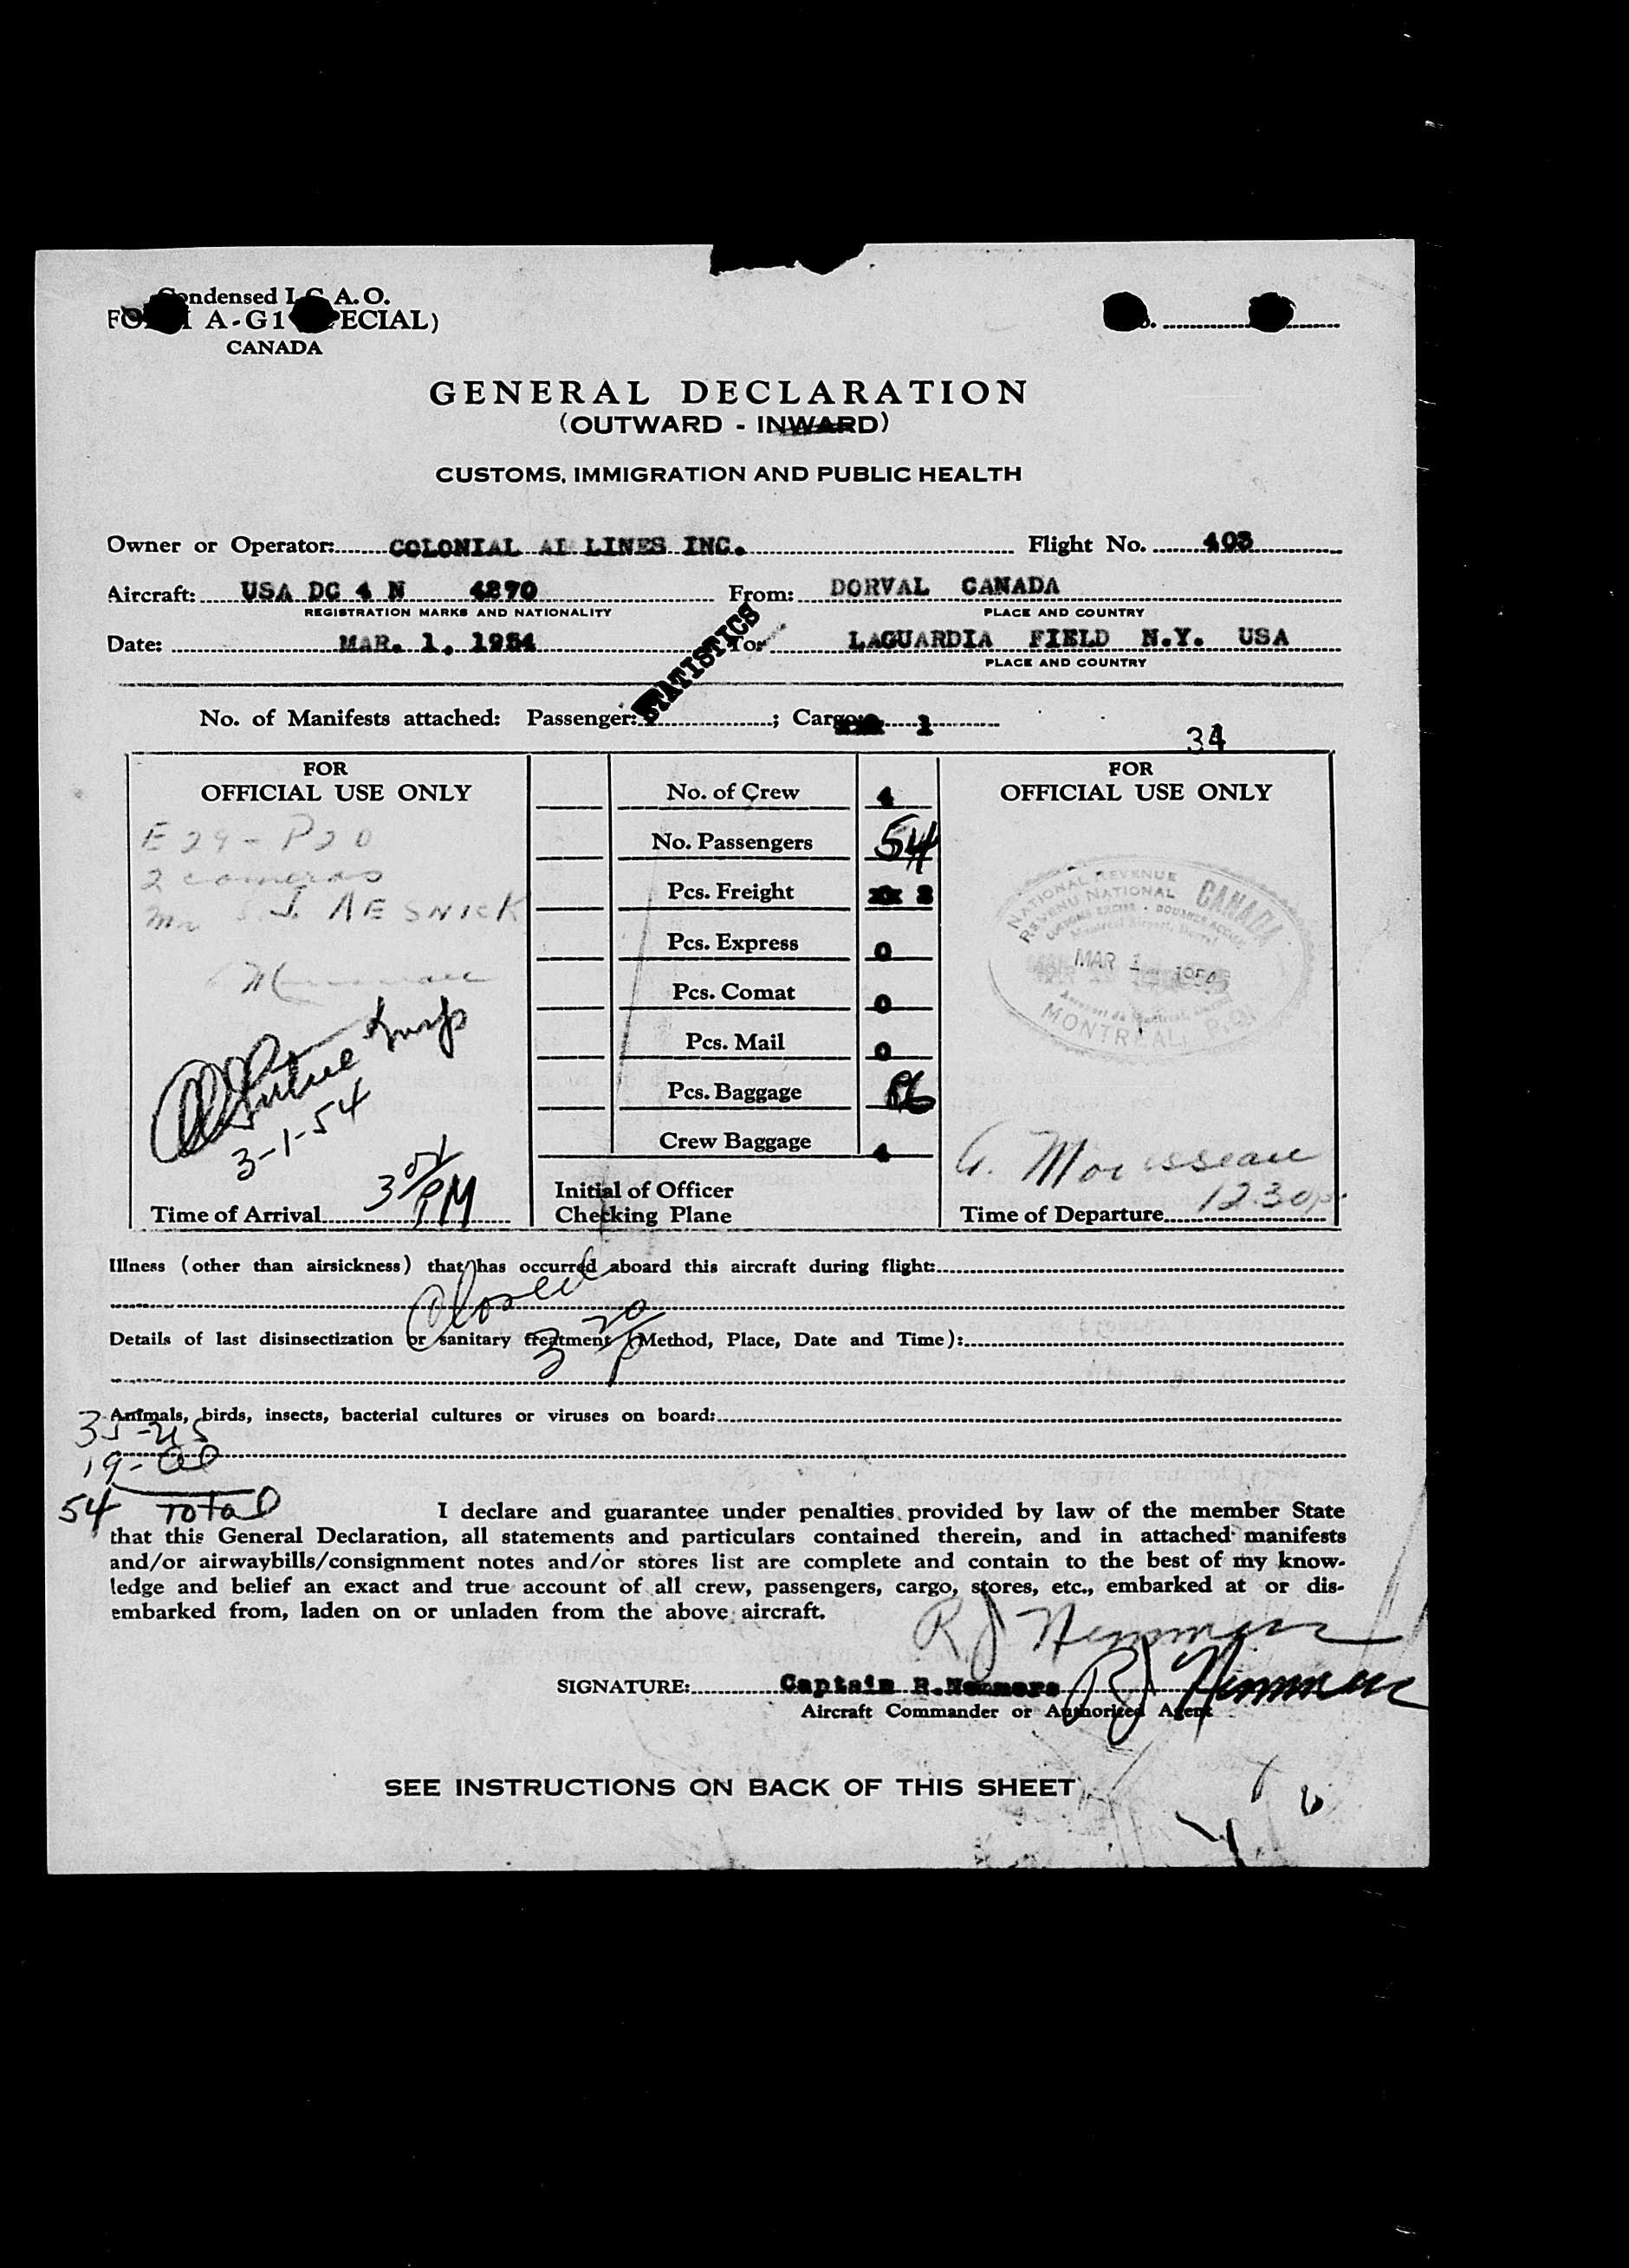 Condensed I.C.A.O.
FORM A-G1 (SPECIAL)
CANADA
GENERAL DECLARATION
(OUTWARD - INWARD)
CUSTOMS, IMMIGRATION AND PUBLIC HEALTH
Owner or Operator: COLONIAL AI LINES INC. Flight No. 403
Aircraft: USA DC 4 N 4270 From: DORVAL CANADA
REGISTRATION MARKS AND NATIONALITY PLACE AND COUNTRY
Date: MAR. 1, 1954 To: LAGUARDIA FIELD N.Y. USA
PLACE AND COUNTRY
STATISTICS
No. of Manifests attached: Passenger: ; Cargo: 1
34
FOR
OFFICIAL USE ONLY
E 29 - P20
2 cameras
Mr S. J. AESNICK
3-1-54
Time of Arrival 3 PM
No. of Crew 4
No. Passengers 54
Pcs. Freight 2
Pcs. Express 0
Pcs. Comat 0
Pcs. Mail 0
Pcs. Baggage
Crew Baggage 4
Initial of Officer
Checking Plane
FOR
OFFICIAL USE ONLY
NATIONAL REVENUE
REVENU NATIONAL
CANADA
MAR 1 1954
MONTREAL, P.Q.
G. Mousseau
12.30 p.
Time of Departure
Illness (other than airsickness) that has occurred aboard this aircraft during flight:
Closed
3 20 P
Details of last disinsectization or sanitary treatment (Method, Place, Date and Time):
Animals, birds, insects, bacterial cultures or viruses on board:
35-US
19-al
54 Total
I declare and guarantee under penalties provided by law of the member State
that this General Declaration, all statements and particulars contained therein, and in attached manifests
and/or airwaybills/consignment notes and/or stores list are complete and contain to the best of my know-
ledge and belief an exact and true account of all crew, passengers, cargo, stores, etc., embarked at or dis-
embarked from, laden on or unladen from the above aircraft.
R J Nemmers
SIGNATURE: Captain R.Nemmers R J Nemmers
Aircraft Commander or Authorized Agent
SEE INSTRUCTIONS ON BACK OF THIS SHEET